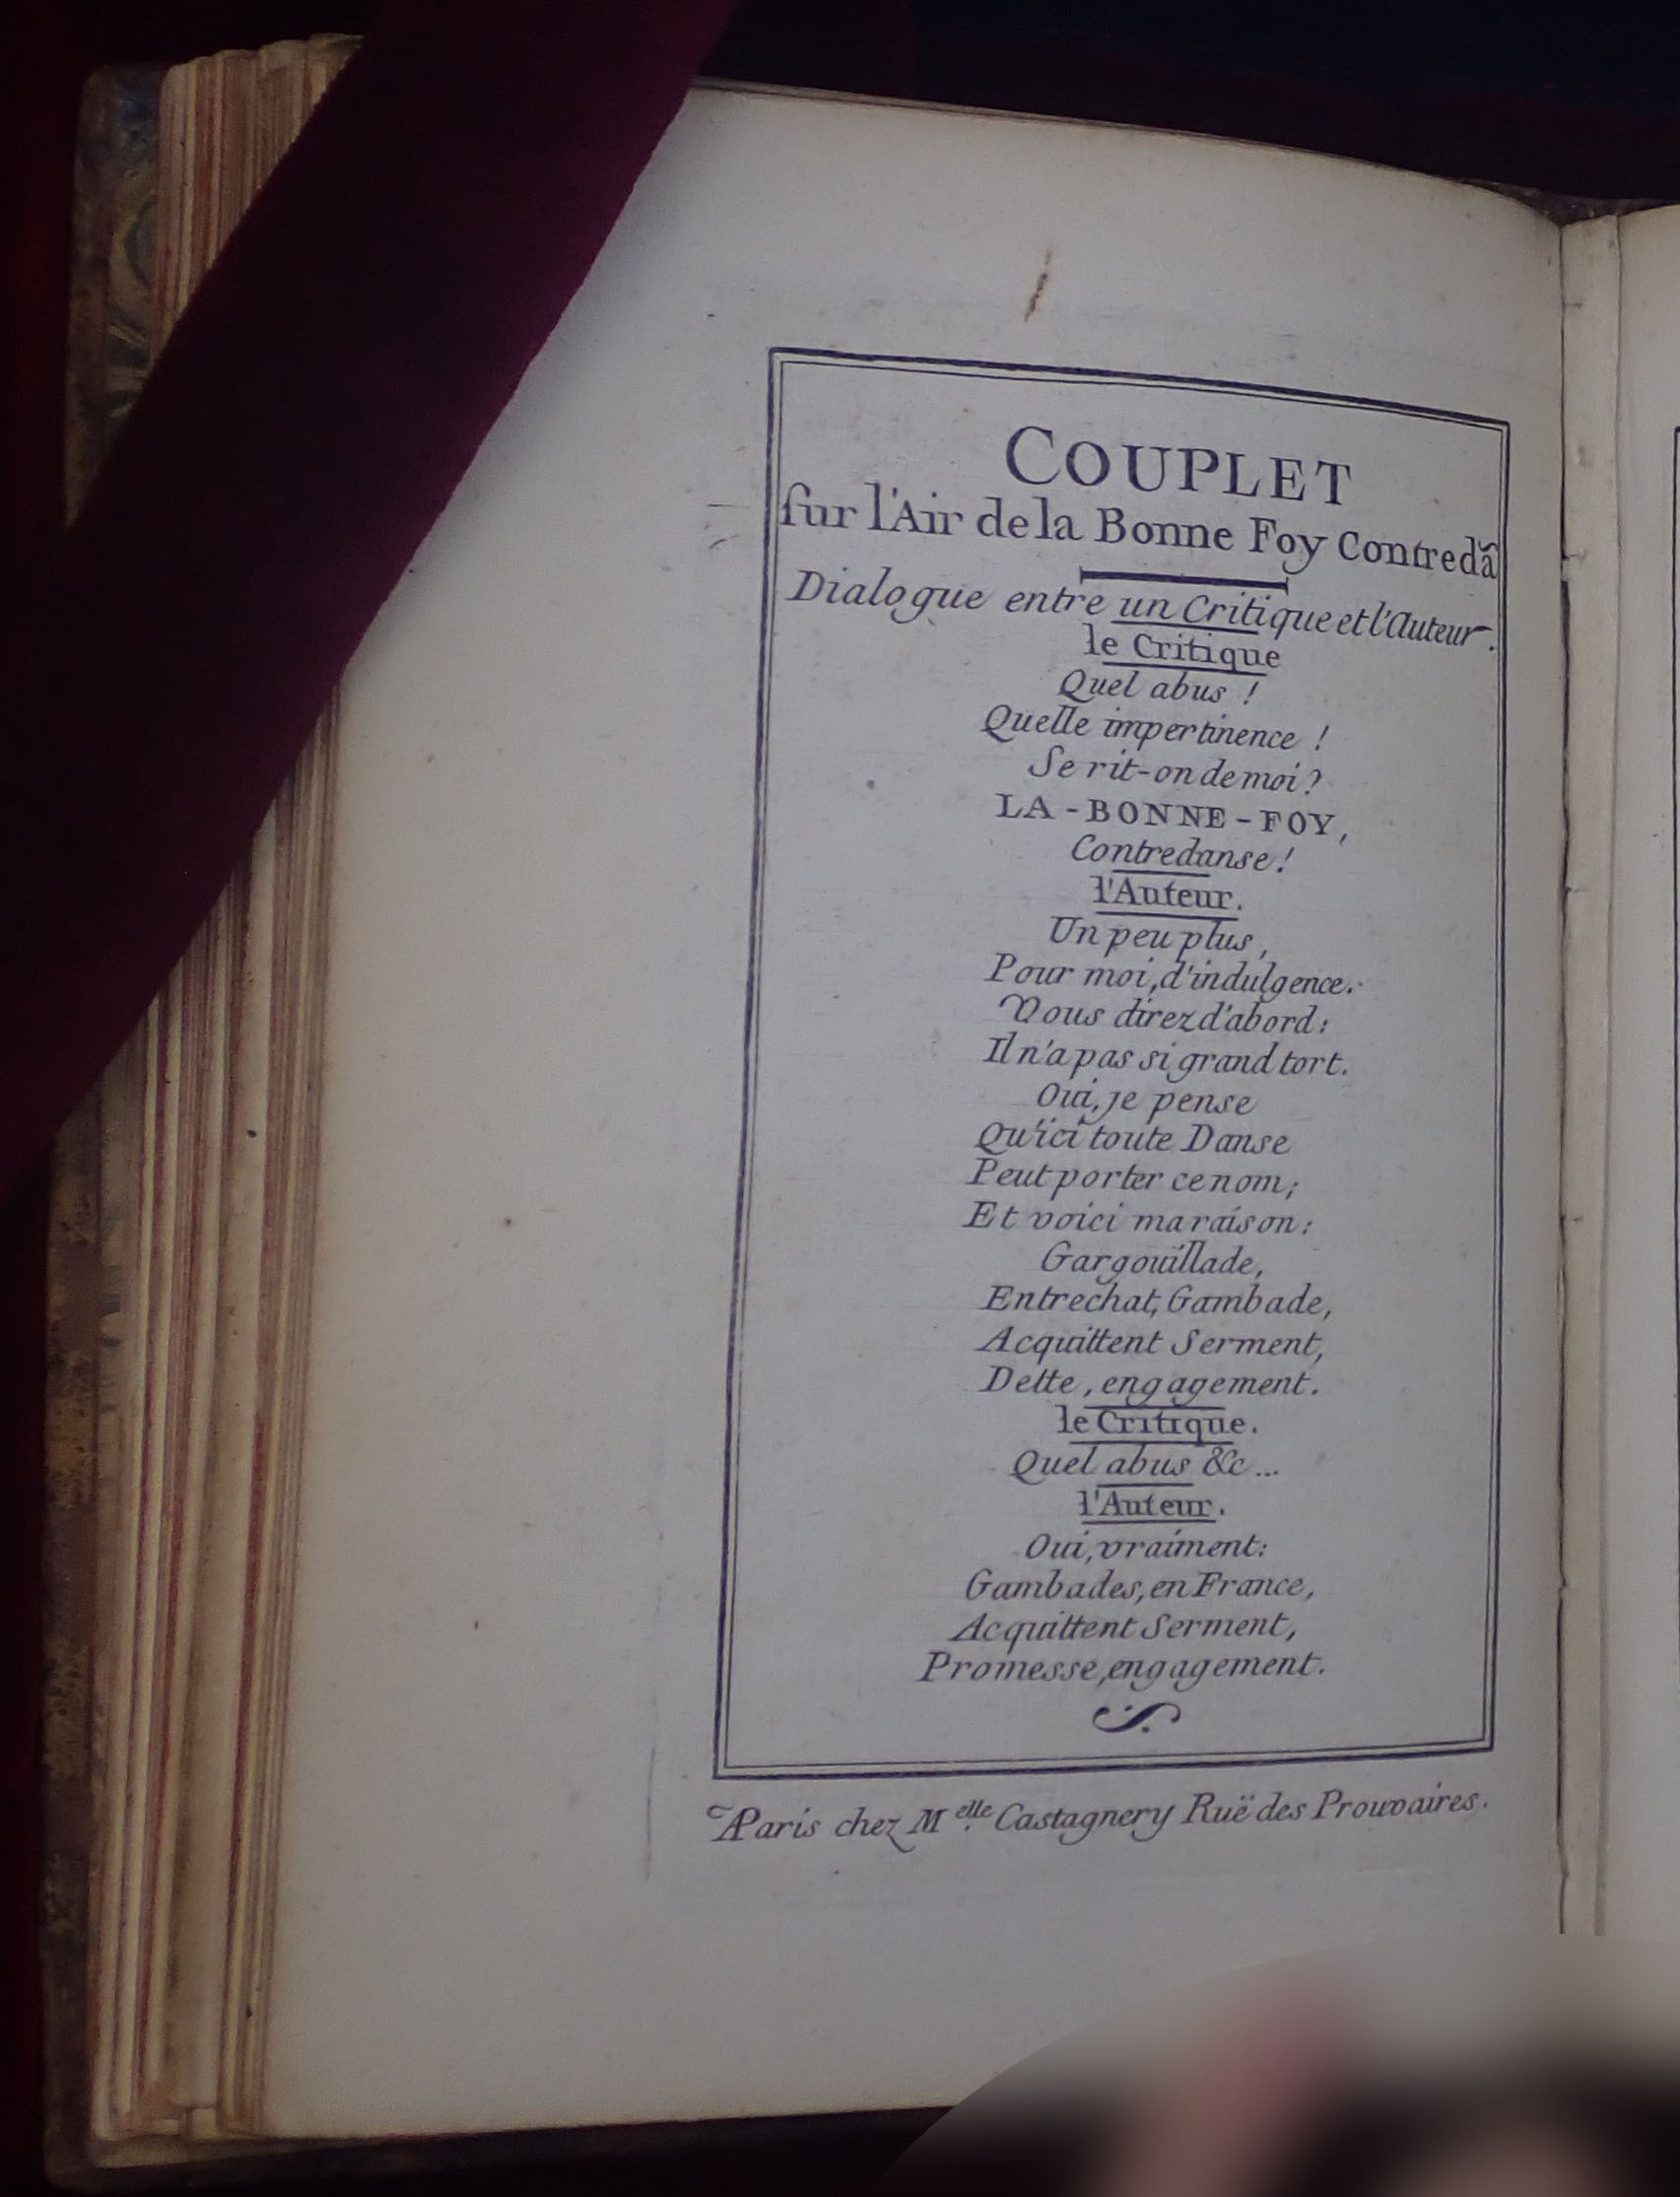 COUPLET
ſur l'Air de la Bonne Foy Contredã
Dialogue entre un Critique et l'Auteur.
le Critique
Quel abus !
Quelle impertinence !
Se rit-on de moi ?
LA-BONNE-FOY,
Contredanse !
l'Auteur.
Un peu plus,
Pour moi, d'indulgence.
Vous direz d'abord :
Il n'a pas si grand tort.
Oui, je pense
Qu'ici toute Danse
Peut porter ce nom ;
Et voici ma raison :
Gargouillade,
Entrechat, Gambade,
Acquittent Serment,
Dette, engagement.
le Critique.
Quel abus &c...
l'Auteur.
Oui, vraiment :
Gambades, en France,
Acquittent Serment,
Promesse, engagement.
AParis chez M.elle Castagnery Ruë des Prouvaires.